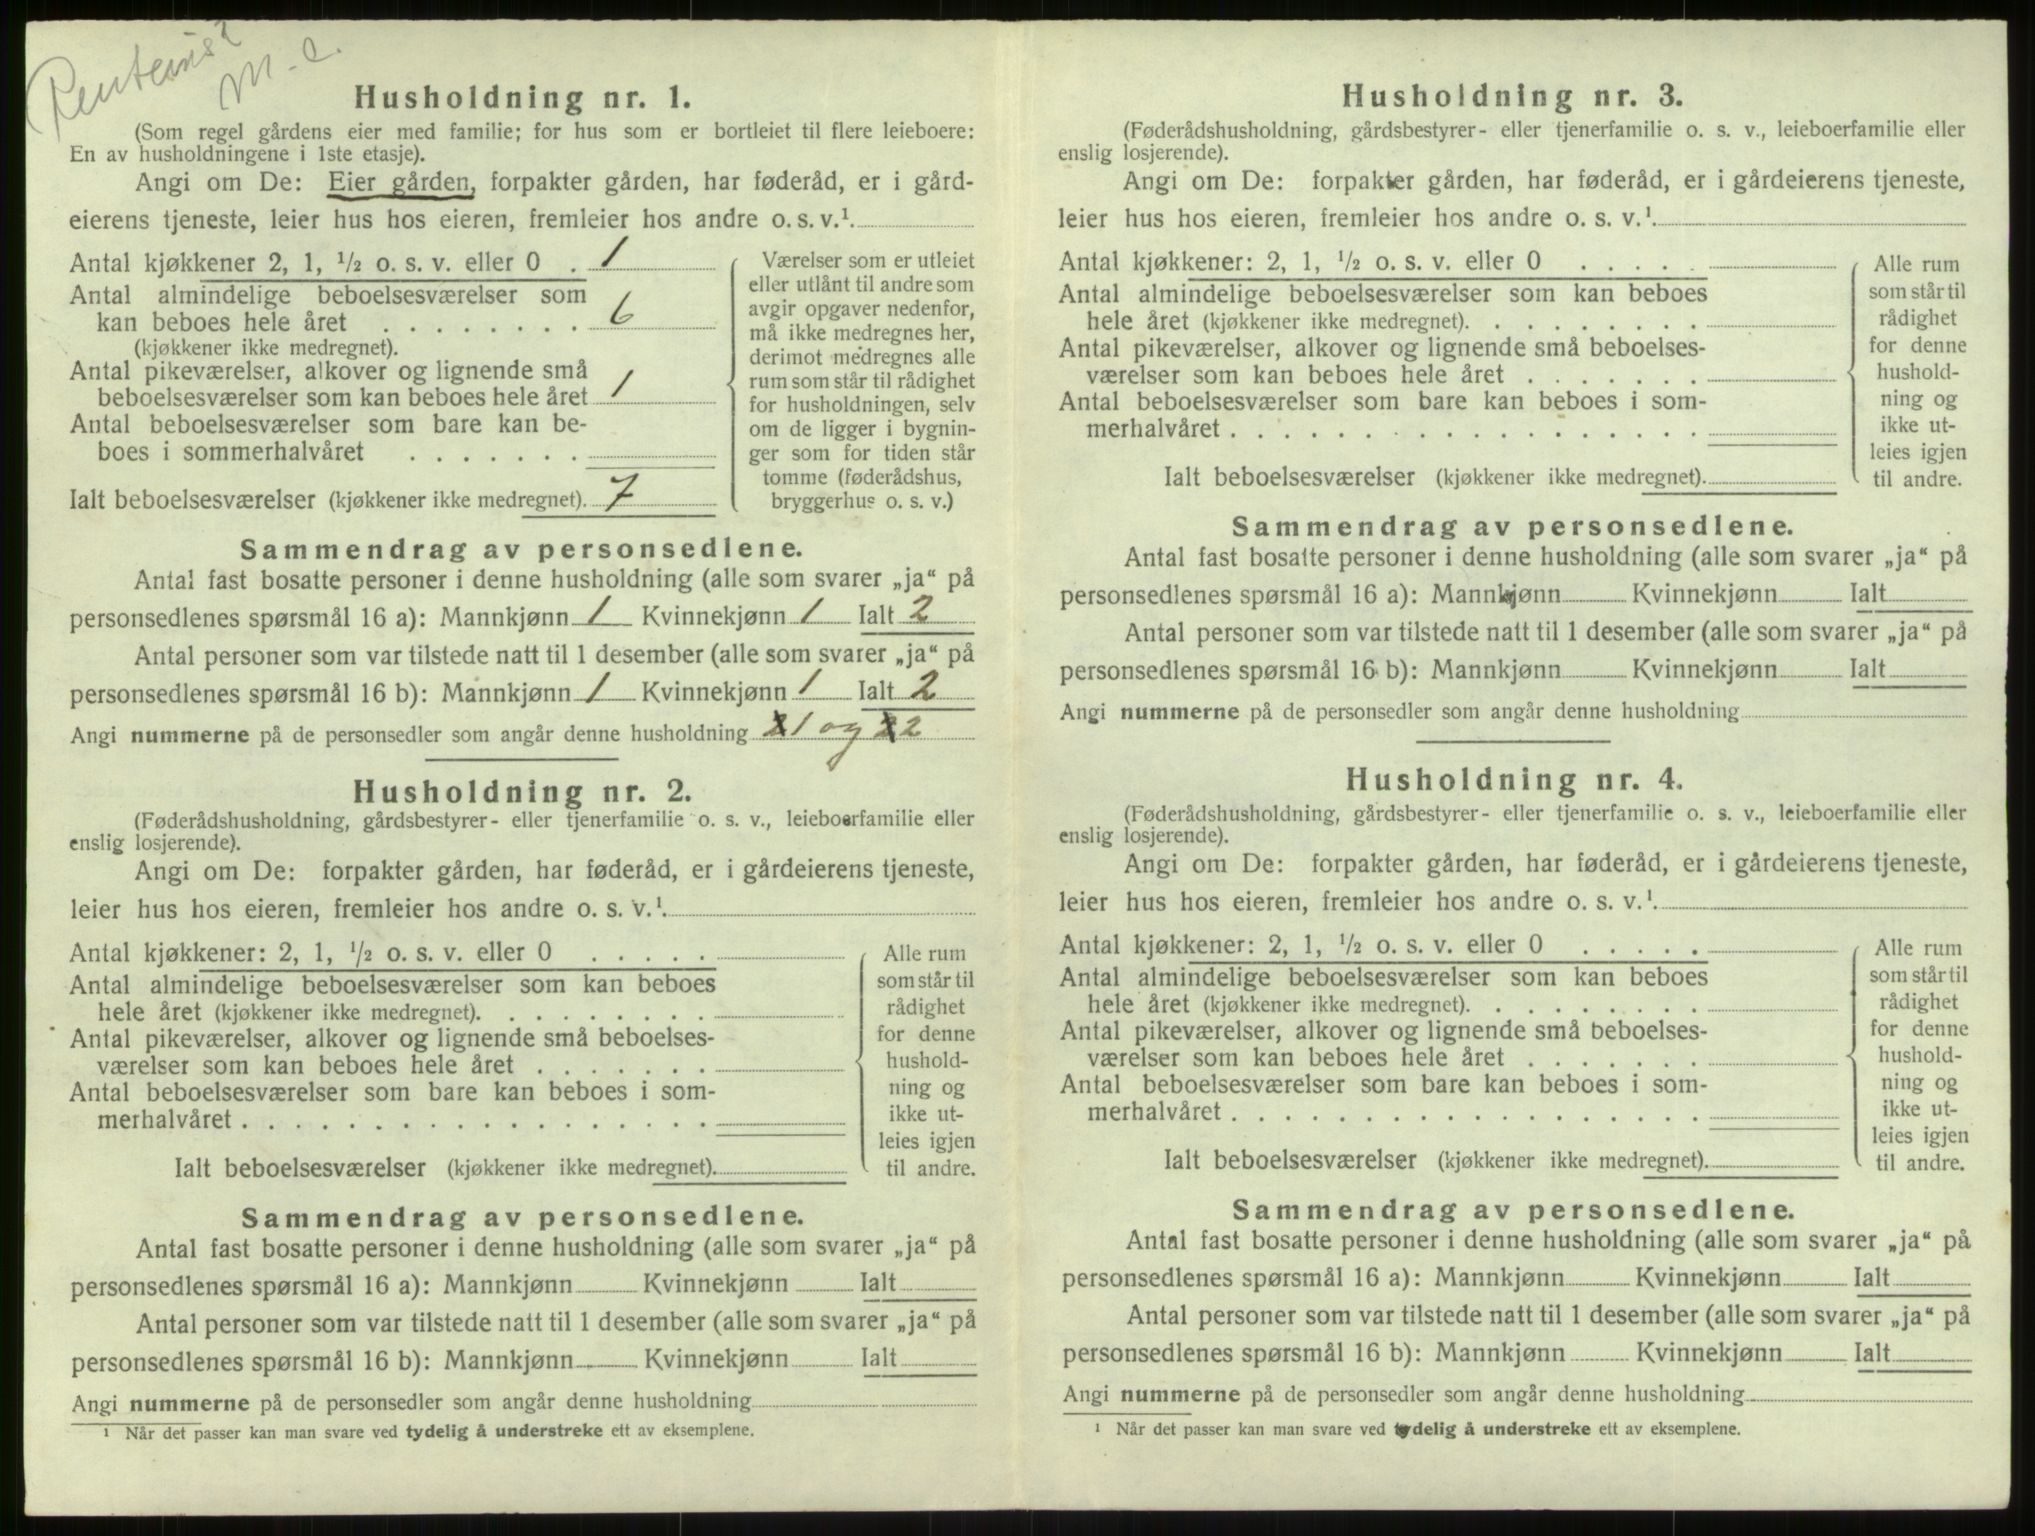 M.c.
Husholdning nr. 1.
(Som regel gårdens eier med familie; for hus som er bortleiet til flere leieboere:
En av husholdningene i 1ste etasje).
Angi om De: Eier gården, forpakter gården, har føderåd, er i gård-
eierens tjeneste, leier hus hos eieren, fremleier hos andre o. s. v.¹
Antal kjøkkener 2, 1, ½ o. s. v. eller 0 . 1
Antal almindelige beboelsesværelser som
kan beboes hele året . . . . . . . . 6
(kjøkkener ikke medregnet).
Antal pikeværelser, alkover og lignende små
beboelsesværelser som kan beboes hele året 1
Antal beboelsesværelser som bare kan be-
boes i sommerhalvåret . . . . . . .
Ialt beboelsesværelser (kjøkkener ikke medregnet). 7
Værelser som er utleiet
eller utlånt til andre som
avgir opgaver nedenfor,
må ikke medregnes her,
derimot medregnes alle
rum som står til rådighet
for husholdningen, selv
om de ligger i bygnin-
ger som for tiden står
tomme (føderådshus,
bryggerhus o. s. v.)
Sammendrag av personsedlene.
Antal fast bosatte personer i denne husholdning (alle som svarer „ja“ på
personsedlenes spørsmål 16 a): Mannkjønn 1 Kvinnekjønn 1 Ialt 2
Antal personer som var tilstede natt til 1 desember (alle som svarer „ja“ på
personsedlenes spørsmål 16 b): Mannkjønn 1 Kvinnekjønn 1 Ialt 2
Angi nummerne på de personsedler som angår denne husholdning 1 og 2
Husholdning nr. 2.
(Føderådshusholdning, gårdsbestyrer- eller tjenerfamilie o. s. v., leieboerfamilie eller
enslig losjerende).
Angi om De: forpakter gården, har føderåd, er i gårdeierens tjeneste,
leier hus hos eieren, fremleier hos andre o. s. v.¹
Antal kjøkkener: 2, 1, ½ o. s. v. eller 0 . . . . .
Antal almindelige beboelsesværelser som kan beboes
hele året (kjøkkener ikke medregnet). . . . . . . . .
Antal pikeværelser, alkover og lignende små beboelses-
værelser som kan beboes hele året . . . . . . .
Antal beboelsesværelser som bare kan beboes i som-
merhalvåret . . . . . . . . . . . . . . . . . .
Ialt beboelsesværelser (kjøkkener ikke medregnet).
Alle rum
som står til
rådighet
for denne
hushold-
ning og
ikke ut-
leies igjen
til andre.
Sammendrag av personsedlene.
Antal fast bosatte personer i denne husholdning (alle som svarer „ja“ på
personsedlenes spørsmål 16 a): Mannkjønn Kvinnekjønn Ialt
Antal personer som var tilstede natt til 1 desember (alle som svarer „ja“ på
personsedlenes spørsmål 16 b): Mannkjønn Kvinnekjønn Ialt
Angi nummerne på de personsedler som angår denne husholdning
¹ Når det passer kan man svare ved tydelig å understreke ett av eksemplene.
Husholdning nr. 3.
(Føderådshusholdning, gårdsbestyrer- eller tjenerfamilie o. s. v., leieboerfamilie eller
enslig losjerende).
Angi om De: forpakter gården, har føderåd, er i gårdeierens tjeneste,
leier hus hos eieren, fremleier hos andre o. s. v.¹
Antal kjøkkener: 2, 1, ½ o. s. v. eller 0 . . . . .
Antal almindelige beboelsesværelser som kan beboes
hele året (kjøkkener ikke medregnet). . . . . . . . .
Antal pikeværelser, alkover og lignende små beboelses-
værelser som kan beboes hele året . . . . . . .
Antal beboelsesværelser som bare kan beboes i som-
merhalvåret . . . . . . . . . . . . . . . . . .
Ialt beboelsesværelser (kjøkkener ikke medregnet).
Alle rum
som står til
rådighet
for denne
hushold-
ning og
ikke ut-
leies igjen
til andre.
Sammendrag av personsedlene.
Antal fast bosatte personer i denne husholdning (alle som svarer „ja“ på
personsedlenes spørsmål 16 a): Mannkjønn Kvinnekjønn Ialt
Antal personer som var tilstede natt til 1 desember (alle som svarer „ja“ på
personsedlenes spørsmål 16 b): Mannkjønn Kvinnekjønn Ialt
Angi nummerne på de personsedler som angår denne husholdning
Husholdning nr. 4.
(Føderådshusholdning, gårdsbestyrer- eller tjenerfamilie o. s. v., leieboerfamilie eller
enslig losjerende).
Angi om De: forpakter gården, har føderåd, er i gårdeierens tjeneste,
leier hus hos eieren, fremleier hos andre o. s. v.¹
Antal kjøkkener: 2, 1, ½ o. s. v. eller 0 . . . . .
Antal almindelige beboelsesværelser som kan beboes
hele året (kjøkkener ikke medregnet). . . . . . . . .
Antal pikeværelser, alkover og lignende små beboelses-
værelser som kan beboes hele året . . . . . . .
Antal beboelsesværelser som bare kan beboes i som-
merhalvåret . . . . . . . . . . . . . . . . . .
Ialt beboelsesværelser (kjøkkener ikke medregnet).
Alle rum
som står til
rådighet
for denne
hushold-
ning og
ikke ut-
leies igjen
til andre.
Sammendrag av personsedlene.
Antal fast bosatte personer i denne husholdning (alle som svarer „ja“ på
personsedlenes spørsmål 16 a): Mannkjønn Kvinnekjønn Ialt
Antal personer som var tilstede natt til 1 desember (alle som svarer „ja“ på
personsedlenes spørsmål 16 b): Mannkjønn Kvinnekjønn Ialt
Angi nummerne på de personsedler som angår denne husholdning
¹ Når det passer kan man svare ved tydelig å understreke ett av eksemplene.